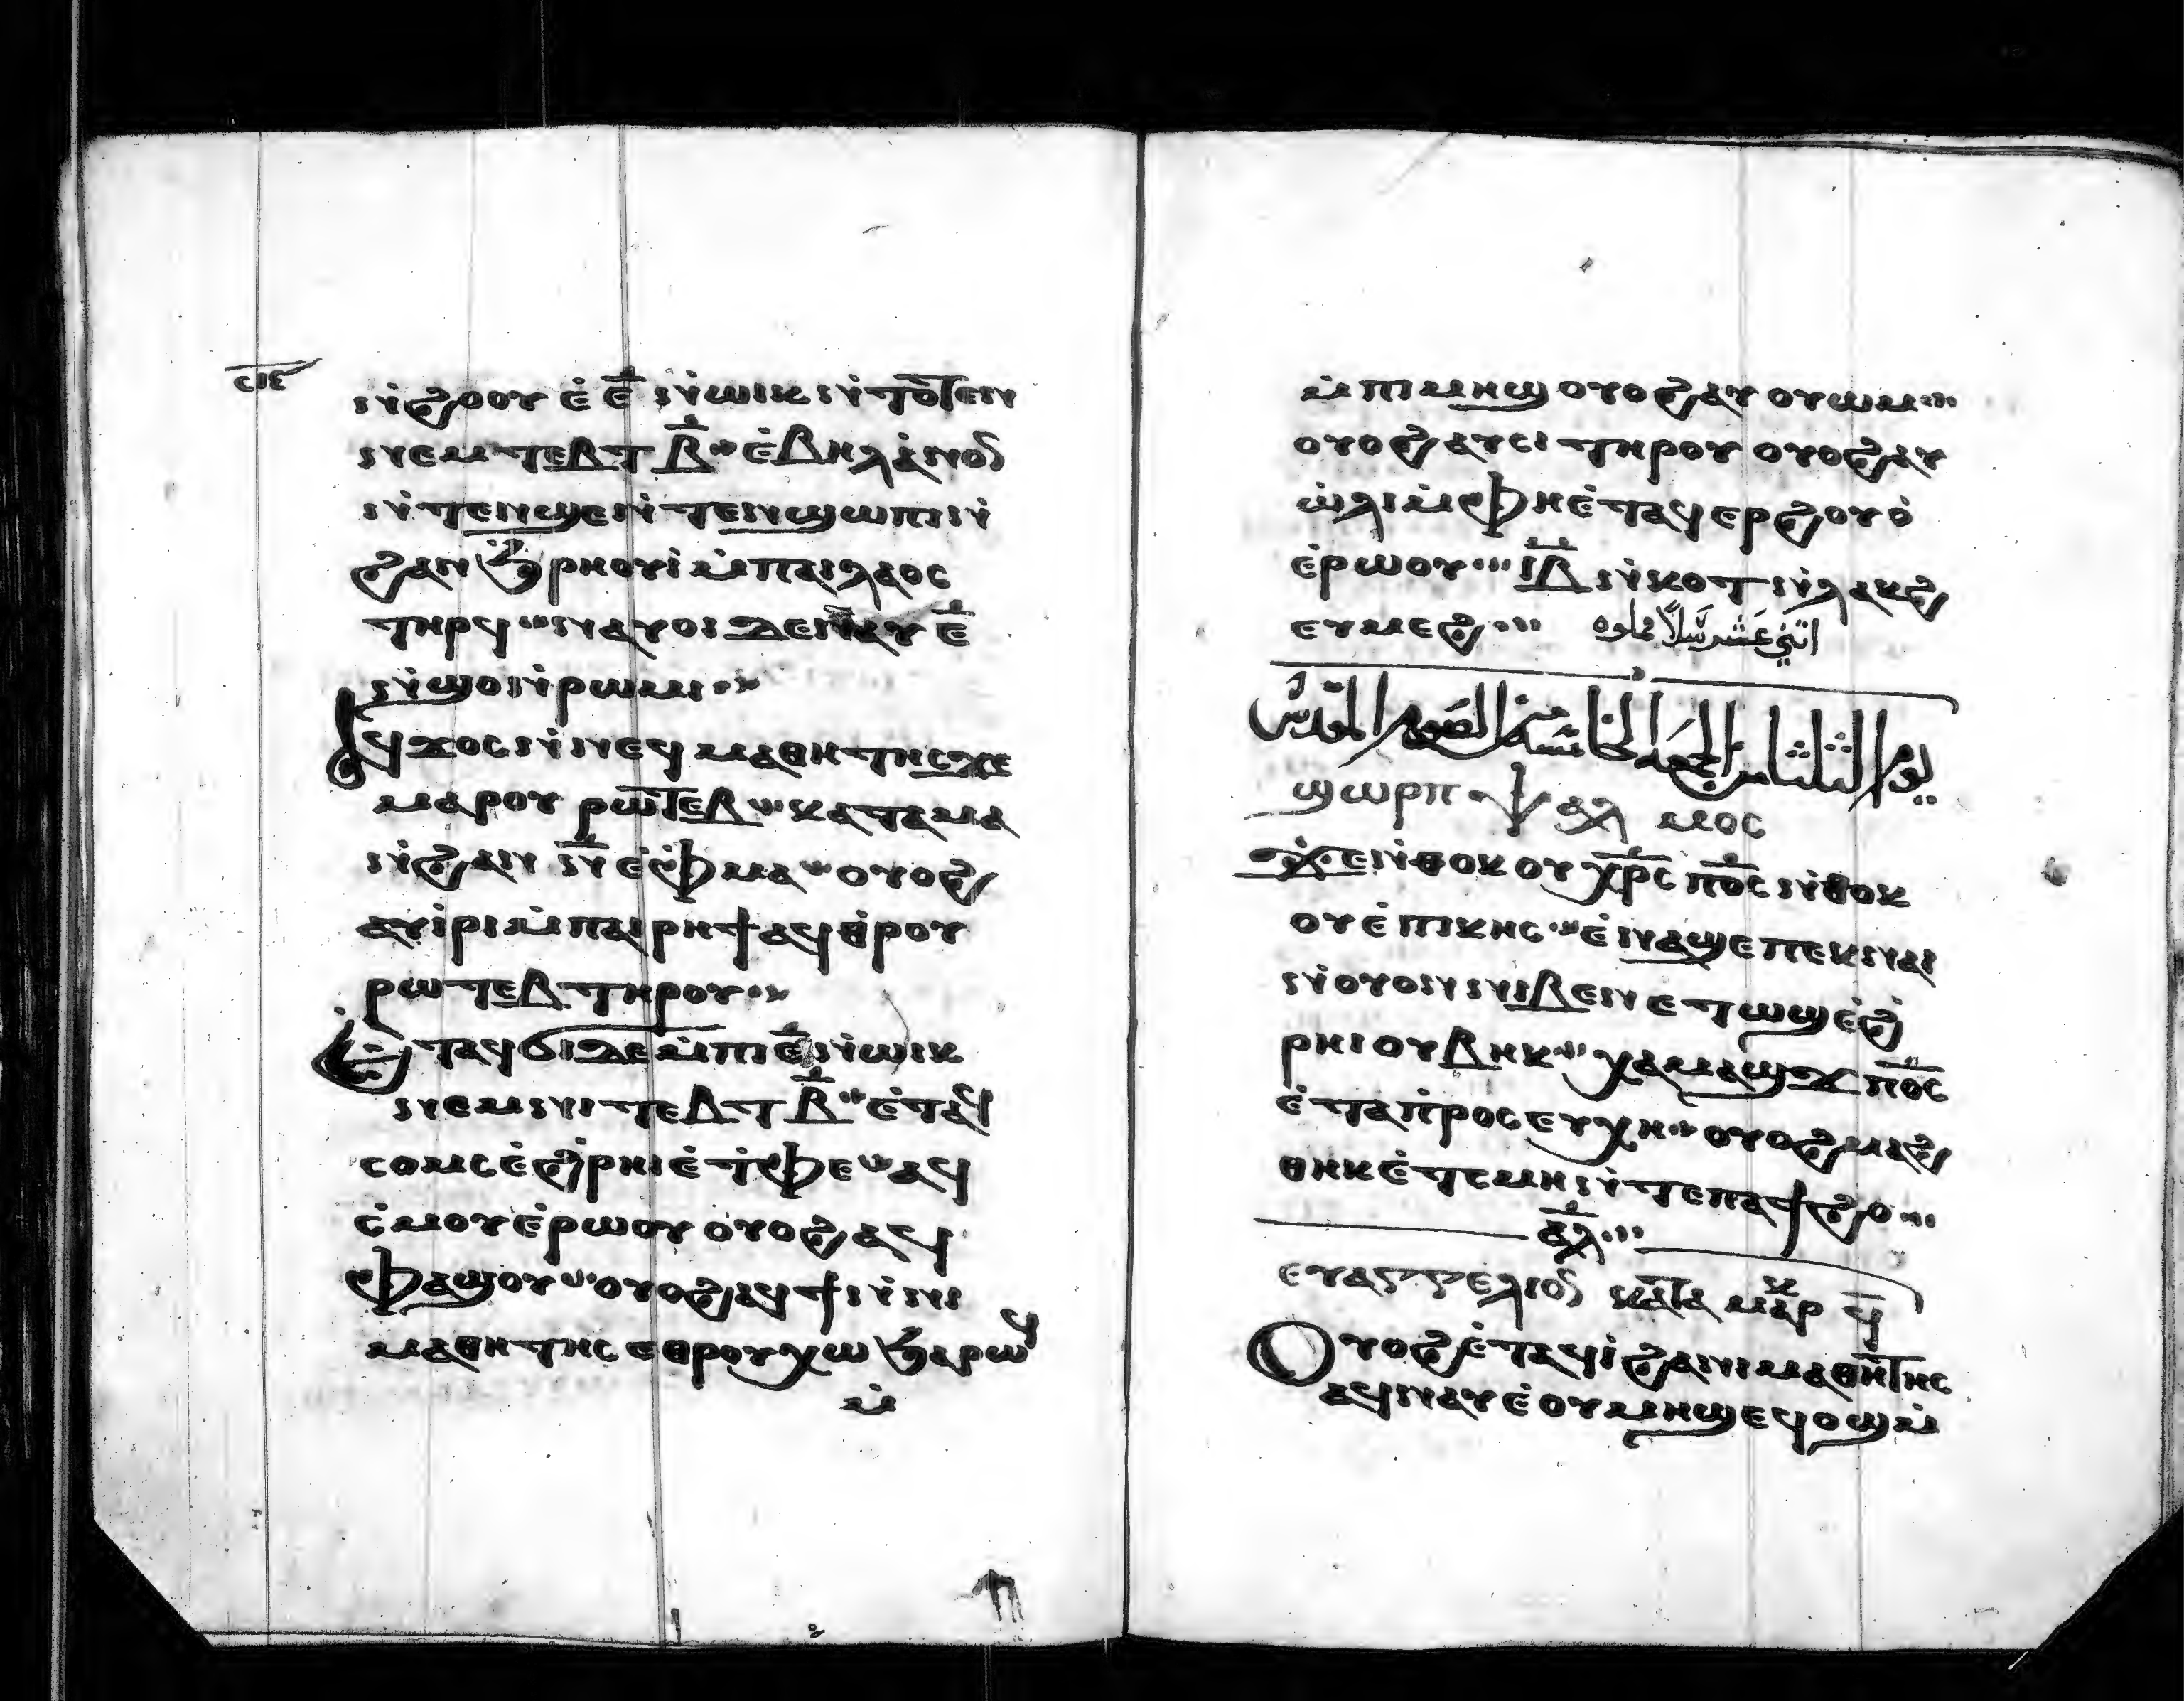 ⲥⲓⲉ
ⲛ̀ϩⲟⲩⲟ ⲉ̀ ⲉ̅ ⲛ̀ⲱⲓⲕ ⲛ̀ⲧⲟⲧⲉⲛ
ⲛⲉⲙ ⲧⲉⲃⲧ ⲃ̅ ⲉ̀ⲃⲏⲗ ⲁ̀ⲛⲟⲛ
ⲛ̀ⲧⲉⲛϣⲉ ⲛ̀ⲧⲉⲛϣⲱⲡ ⲛ̀
ϩⲁⲛϧ̀ⲣⲏⲟⲩⲓ̀ ⲙ̀ⲡⲁⲓⲗⲁⲟⲥ
ⲧⲏⲣϥ ⲛⲁⲩⲟⲓ ⲇⲉ ⲛⲁⲩ ⲉ̅
ⲛ̀ϣⲟ ⲛ̀ⲣⲱⲙⲓ
Ⲁϥϫⲟⲥ ⲛ̀ⲛⲉϥⲙⲁⲑⲏⲧⲏⲥ ϫⲉ
ⲙⲁⲣⲟⲩⲣⲱⲧⲉⲃ ⲕⲁⲧⲁ ⲙⲁ
ⲛ̀ϩⲁⲛ ⲛ̅ ⲉ̀ⲫⲙⲁ ⲟⲩⲟϩ
ⲁⲩⲓ̀ⲣⲓ ⲙ̀ⲡⲁⲓⲣⲏϯ ⲁϥⲑⲣⲟⲩ
ⲣⲱⲧⲉⲃ ⲧⲏⲣⲟⲩ
Ⲉ̀ⲧⲁϥϭⲓ ⲇⲉ ⲙ̀ⲡⲓ ⲉ̅ ⲛ̀ⲱⲓⲕ
ⲛⲉⲙ ⲛⲓⲧⲉⲃⲧ ⲃ̅ ⲉ̀ⲧⲁϥ
ⲥⲟⲙⲥ ⲉ̀ϩ̀ⲣⲏⲓ ⲉ̀ⲧ̀ⲫⲉ ⲁϥ
ⲥ̀ⲙⲟⲩ ⲉ̀ⲣⲱⲟⲩ ⲟⲩⲟϩ ⲁϥ
ⲫⲁϣⲟⲩ ⲟⲩⲟϩ ⲁϥϯ ⲛ̀ⲛⲓ
ⲙⲁⲑⲏⲧⲏⲥ ⲉⲑⲣⲟⲩⲭⲱ ϧⲁⲣⲱϥ
ⲙ̀
ⲙ̀ⲡⲓⲙⲏϣ ⲟⲩⲟϩ ⲁⲩⲟⲩⲱⲙ
ⲟⲩⲟϩ ⲁⲩⲥⲓ ⲧⲏⲣⲟⲩ ⲟⲩⲟϩ ⲁⲩ
ⲱ̀ⲗⲓ ⲙ̀ⲫⲏ ⲉ̀ⲧⲁϥⲉⲣϩⲟⲩⲟ̀
ⲉ̀ⲣⲱⲟⲩ ⲓ̅ⲃ̅ ⲛ̀ⲕⲟⲧ ⲛ̀ⲗⲁⲕϩ
ⲉⲩⲙⲉϩ اثني عشر سلا مملوه
يوم الثلثا من الجمعه الخامسه من الصوم المقدس
ϣⲱⲣⲡ ⲯⲁⲗⲙⲟⲥ
ϫⲉ ⲛ̀ⲑⲟⲕ ⲟⲩⲭ̅ⲣ̅ⲥ̅ ⲡ̅ⲟ̅ⲥ̅ ⲛ̀ⲑⲟⲕ
ⲟⲩⲉ̀ⲡⲓⲕⲏⲥ ⲉ̀ⲛⲁϣⲉ ⲡⲉⲕⲛⲁⲓ
ⲛ̀ⲟⲩⲟⲛ ⲛⲓⲃⲉⲛ ⲉⲧⲱϣ ⲉ̀ϩ̀
ⲣⲏⲓ ⲟⲩⲃⲏⲕ ⲭⲁⲙⲁϣϫ ⲡ̅ⲟ̅ⲥ̅
ⲉ̀ⲧⲁⲡ̀ⲣⲟⲥⲉⲩⲭⲏ ⲟⲩⲟϩ ⲙⲁϩ
ⲑⲏⲕ ⲉ̀ⲧ̀ⲥⲙⲏ ⲛ̀ⲧⲉ ⲡⲁϯϩⲟ
ⲁⲗ
ⲉⲩⲁⲅⲅⲉⲗⲓⲟⲛ ⲕⲁⲧⲁ ⲙⲁⲣⲕ ϥ̅
Ⲟⲩⲟϩ ⲉ̀ⲧⲁϥⲓ̀ ϩⲁ ⲛⲓⲙⲁⲑⲏⲧⲏⲥ
ⲁϥⲛⲁⲩ ⲉ̀ⲟⲩⲙⲏϣ ⲉϥⲟϣ ⲙ̀